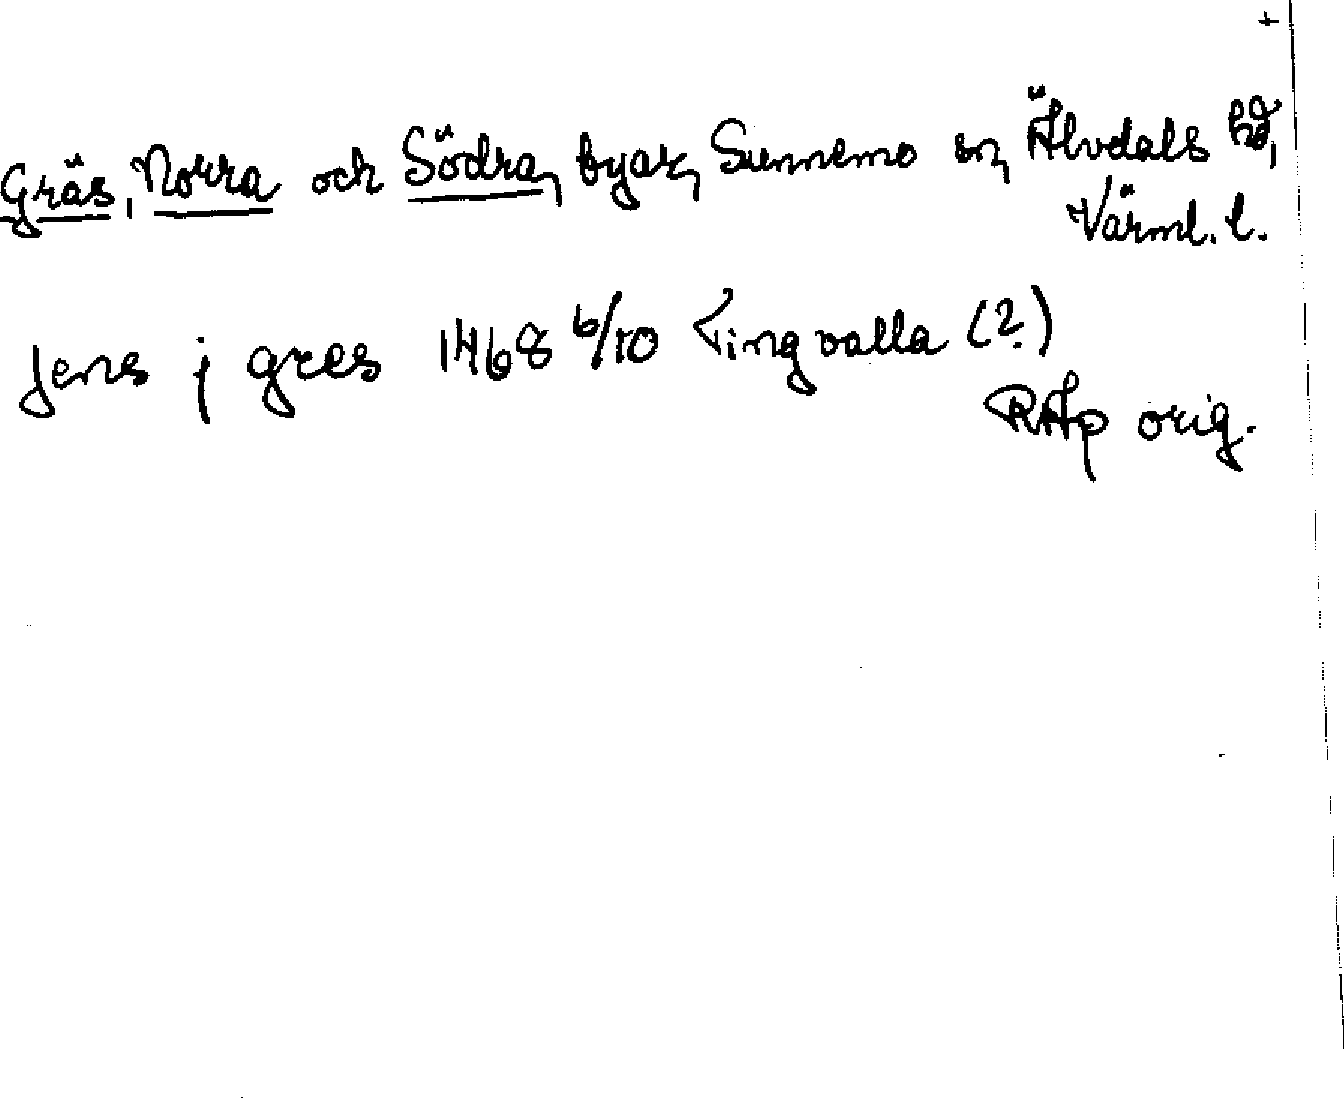 +
Gräs, Norra och Södra, byar, Sunnemo sn, Älvdals hd,
Värml. l.
Jens j gres 1468 6/10 Tingvalla (?)
RAp orig.